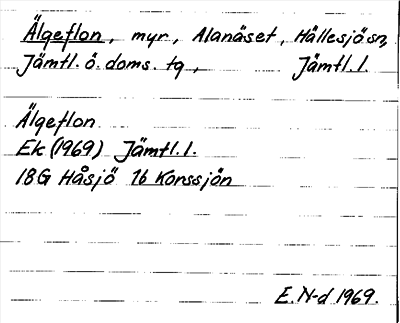 Älgeflon, myr, Alanäset, Hällesjö sn,
Jämtl. ö. doms. tg, Jämtl. l.
Älgeflon
Ek (1969) Jämtl. l.
18G Håsjö 1b Konssjön
E. N-d 1969.